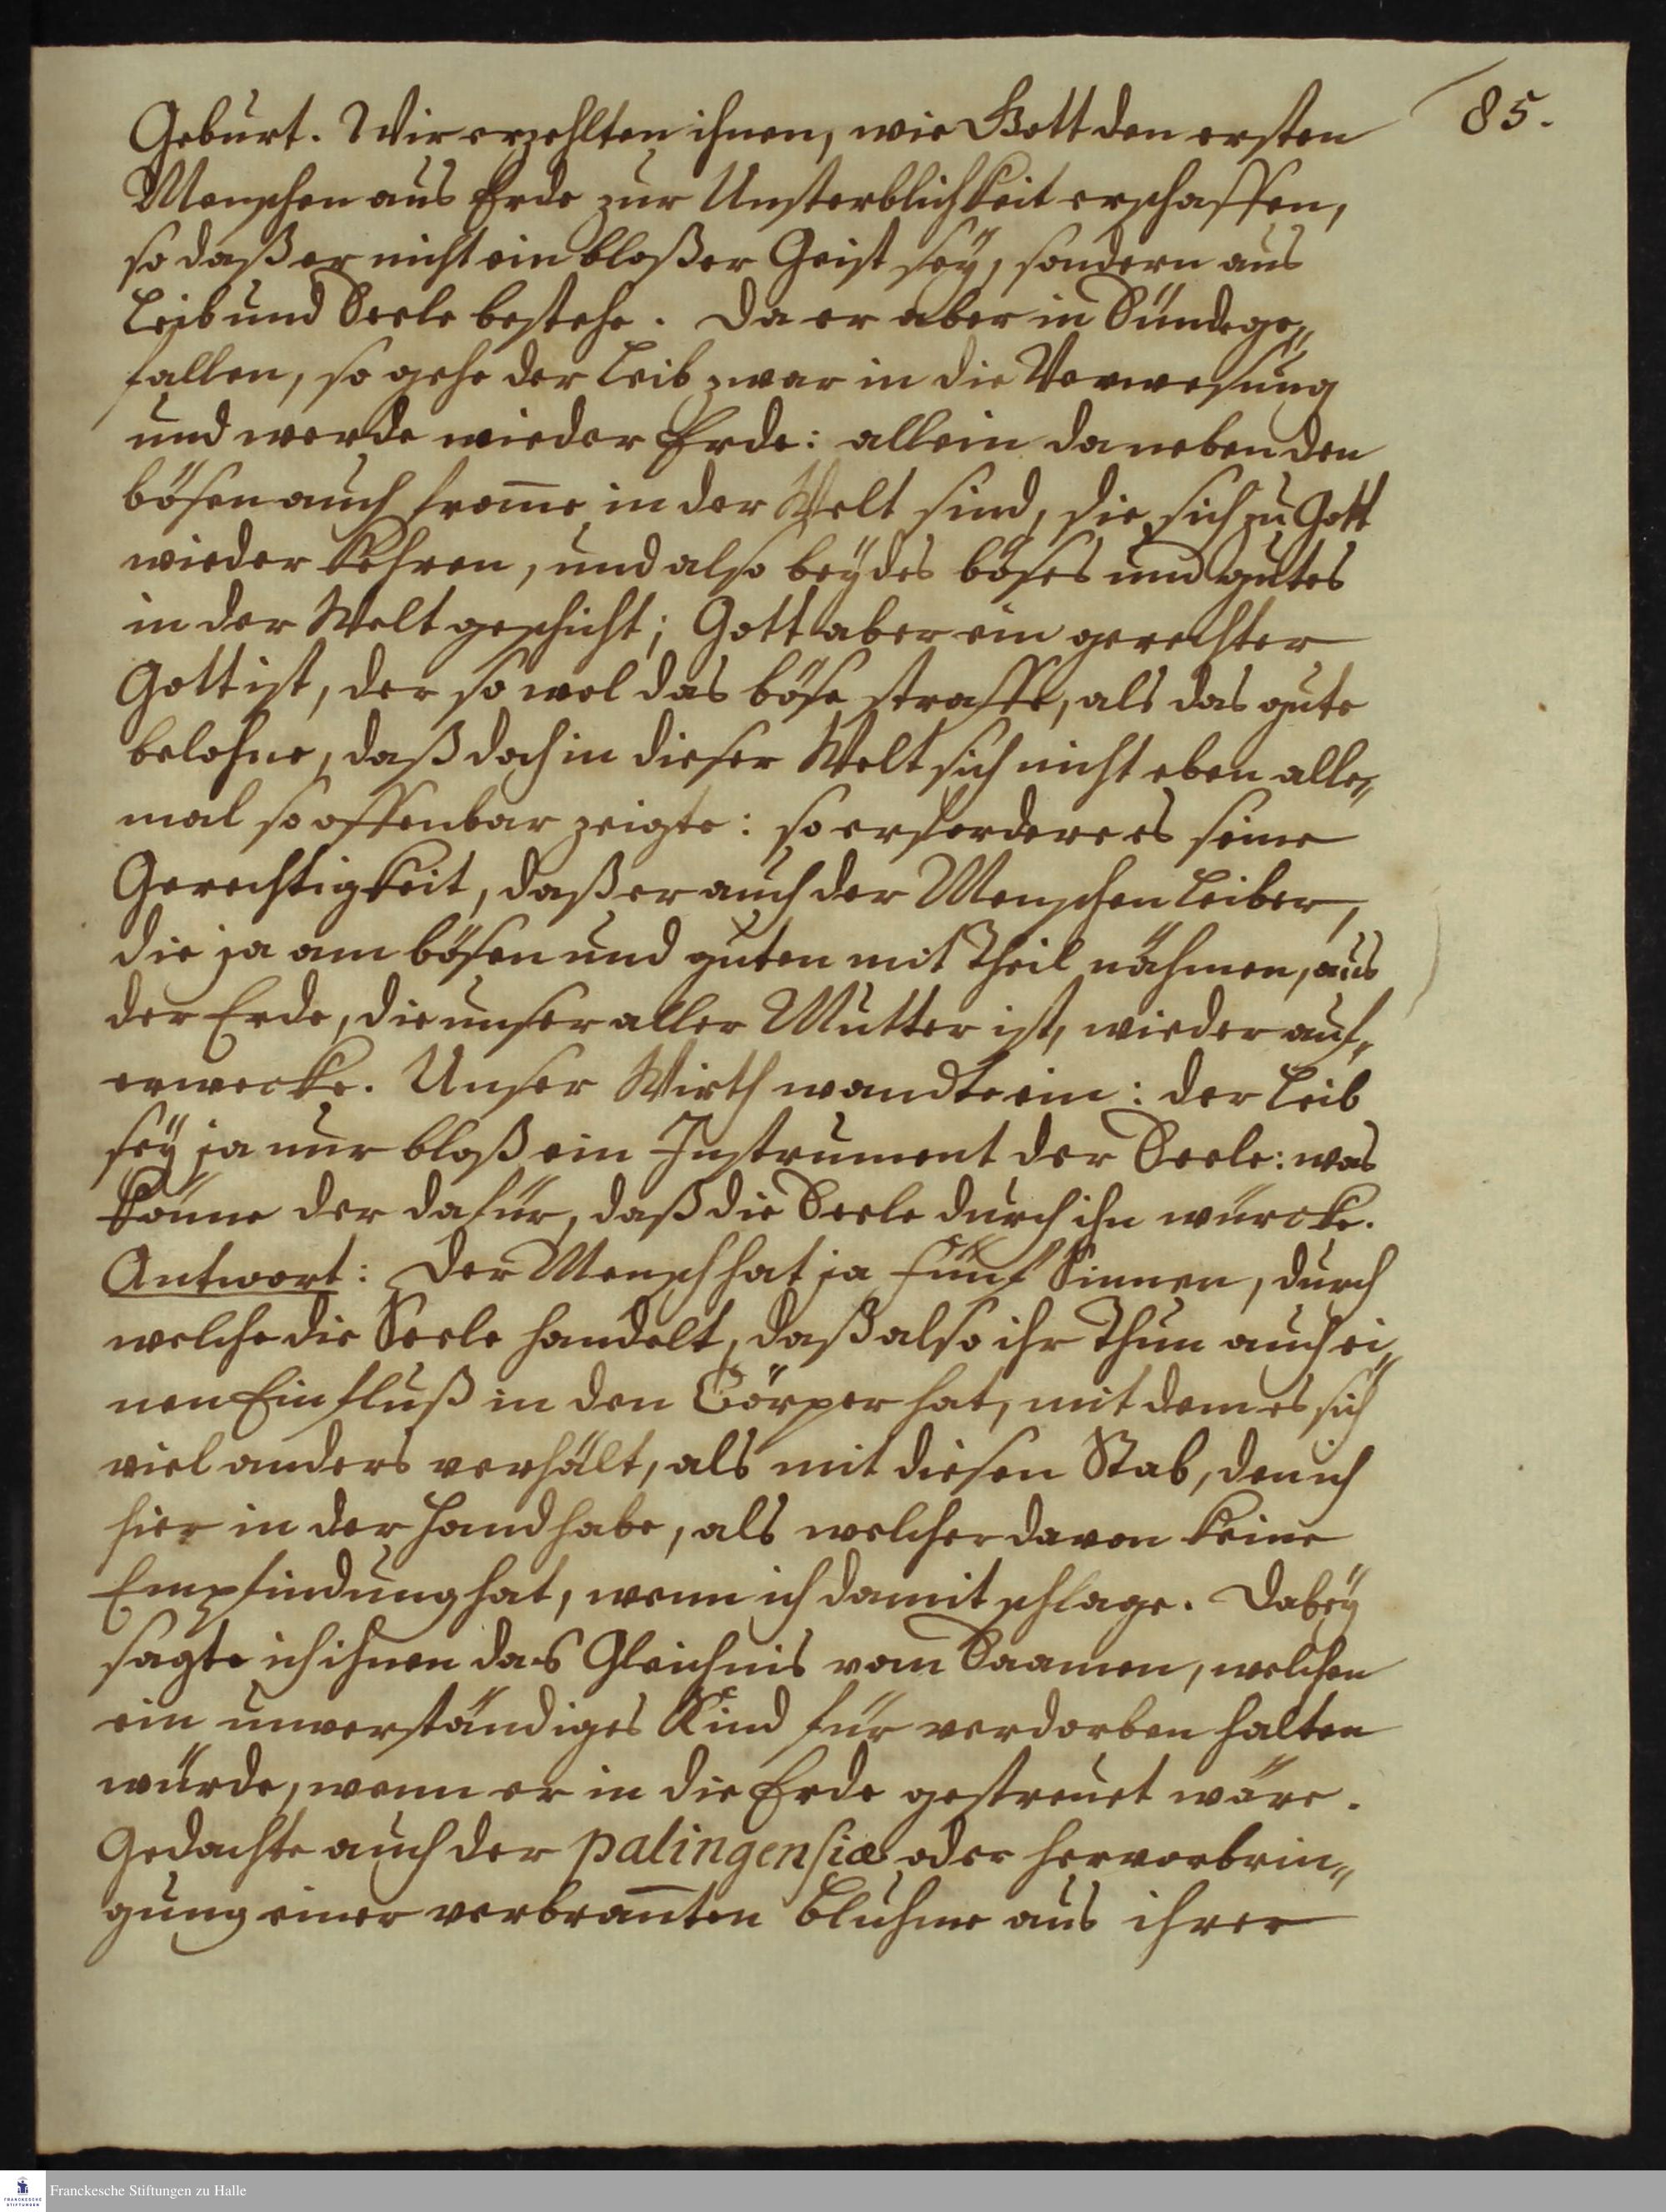 85.
Geburt. Wir erzehlten ihnen, wie Gott den ersten
Menschen aus Erde zur Unsterblichkeit erschaffen,
so daß er nicht ein bloßer Geist seÿ, sondern aus
Leib und Seele bestehe. Da er aber in Sünde ge„
fallen, so gehe der Leib zwar in die Verwesung
und werde wieder Erde: allein da neben den
bösen auch from̅e in der Welt sind, die sich zu Gott
wieder kehren, und also beÿdes böses und gutes
in der Welt geschicht; Gott aber ein gerechter
Gott ist, der so wol das böse straffe, als das gute
belohne, daß doch in dieser Welt sich nicht eben alle„
mal so offenbar zeigte: so erfordere es seine
Gerechtigkeit, daß er auch der Menschen Leiber,
die ja am bösen und guten mit Theil nähmen, aus
der Erde, die unser aller Mutter ist, wieder auf„
erwecke. Unser Wirth wandte ein: der Leib
seÿ ja nur bloß ein Instrument der Seele: was
könne der dafür, daß die Seele durch ihn würcke.
Antwort: Der Mensch hat ja fünf Sinnen, durch
welche die Seele handelt, daß also ihr Thun auch ei„
nen Einfluß in den Cörper hat, mit dem es sich
viel anders verhält, als mit diesen Stab, den ich
hier in der Hand habe, als welcher davon keine
Empfindung hat, wenn ich damit schlage. Dabeÿ
sagte ich ihnen das Gleichnis vom Saamen, welchen
ein unverständiges Kind für verdorben halten
würde, wenn er in die Erde gestreuet wäre.
Gedachte auch der palingensiæ oder hervorbrin„
gung einer verbran̅ten Bluhme aus ihrer
Franckesche Stiftungen zu Halle
FRANCKESCHE STIFTUNGEN